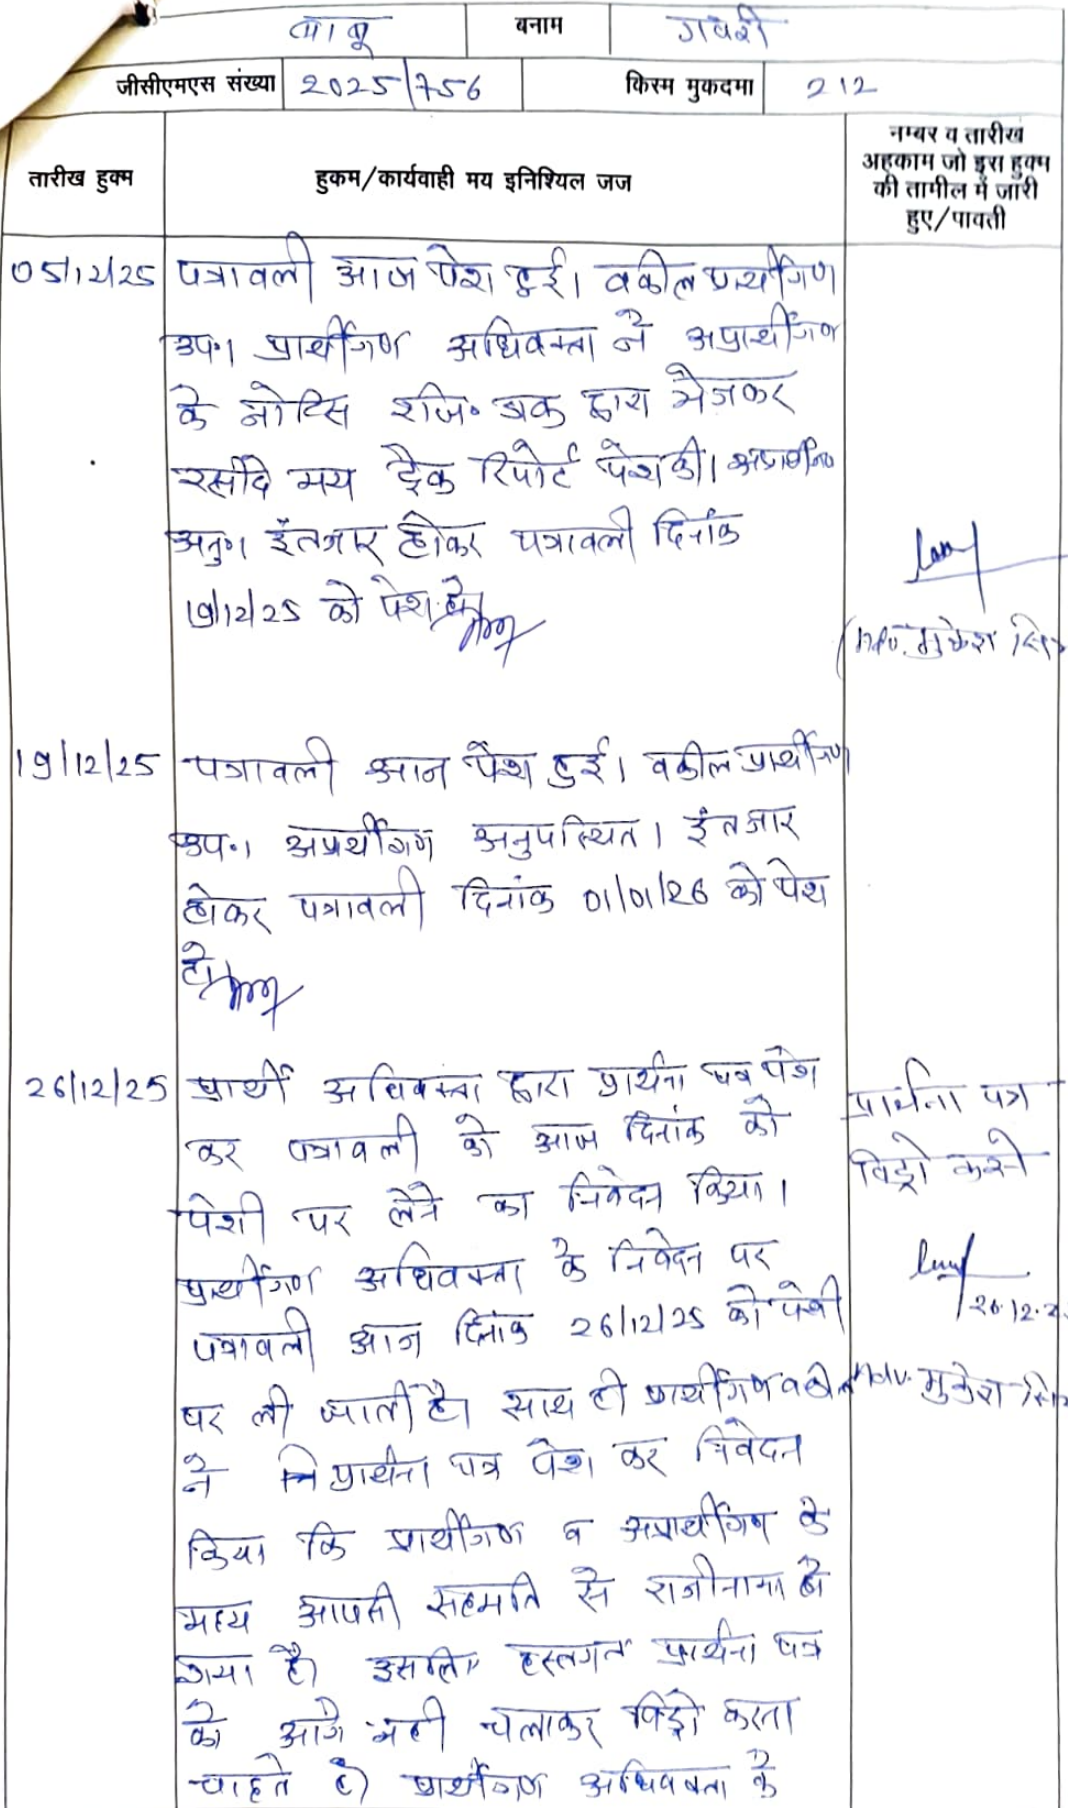 बाबू बनाम गवरी
जीसीएमएस संख्या 2025/756 किस्म मुकदमा 212
तारीख हुक्म
हुकम/कार्यवाही मय इनिश्यिल जज
नम्बर व तारीख
अहकाम जो इस हुक्म
की तामील में जारी
हुए/पावती
05/12/25 पत्रावली आज पेश हुई। वकील प्रार्थीगण
उप॰। प्रार्थीगण अधिवक्ता ने अप्रार्थीगण
के नोटिस रजि॰ डाक द्वारा भेजकर
रसीदे मय ट्रैक रिपोर्ट पेश की। अप्रार्थीगण
अनु॰। इंतजार होकर पत्रावली दिनांक
19/12/25 को पेश हो।
मुकेश सिंह
19/12/25 पत्रावली आज पेश हुई। वकील प्रार्थीगण
उप॰। अप्रार्थीगण अनुपस्थित। इंतजार
होकर पत्रावली दिनांक 01/01/26 को पेश
हो।
26/12/25 प्रार्थी अधिवक्ता द्वारा प्रार्थना पत्र पेश
कर पत्रावली को आज दिनांक को
पेशी पर लेने का निवेदन किया।
प्रार्थीगण अधिवक्ता के निवेदन पर
पत्रावली आज दिनांक 26/12/25 को पेशी
पर ली जाती है। साथ ही प्रार्थीगण वकील
ने प्रार्थना पत्र पेश कर निवेदन
किया कि प्रार्थीगण व अप्रार्थीगण के
मध्य आपसी सहमति से राजीनामा हो
गया है। इसलिए हस्तगत प्रार्थना पत्र
को आगे नही चलाकर विड्रो करना
चाहते है। प्रार्थीगण अधिवक्ता के
प्रार्थना पत्र
विड्रो करने
26.12.2
Adv. मुकेश सिंह